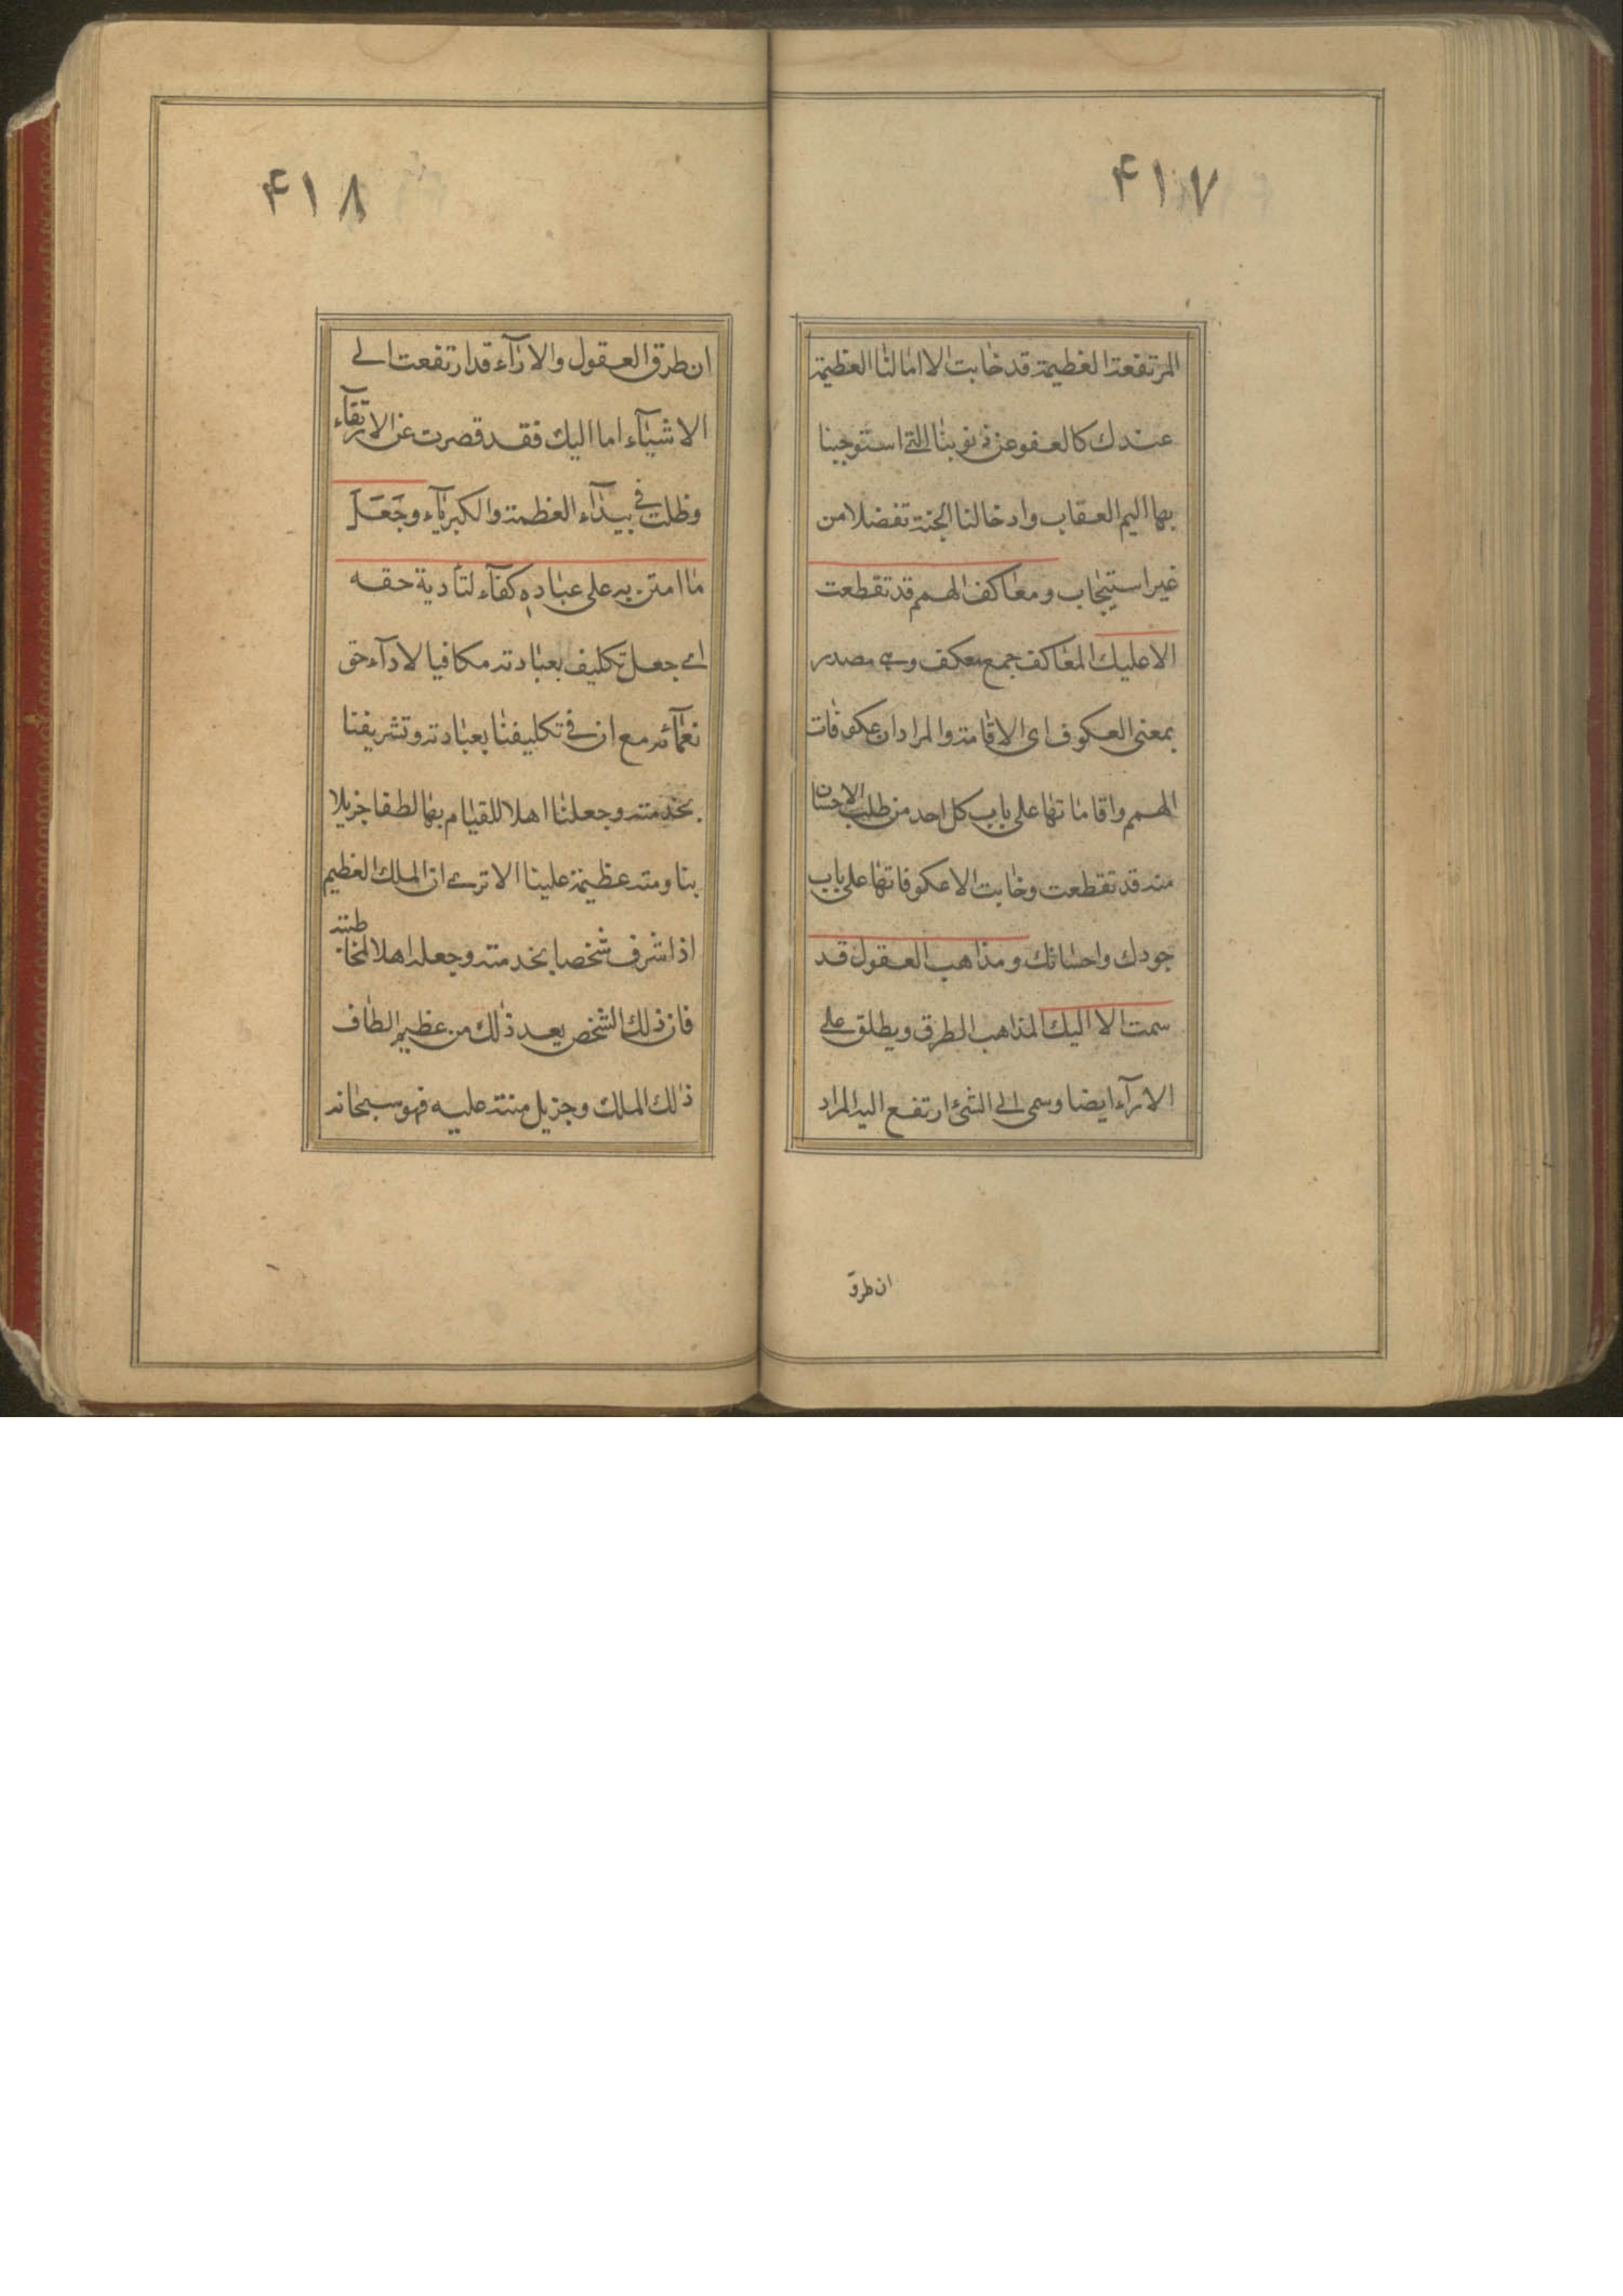 ۴۱۷
المرتفعة العظيمة قد خابت الا امالنا العظيمة
عندك كالعفو عن ذنوبنا التي استوجبنا
بها اليم العقاب وادخالنا الجنة تفضلا من
غير استيجاب ومعاكف الهمم قد تقطعت
الا عليك المعاكف جمع معكف وهي مصدر
بمعنى العكوف اى الاقامة والمراد ان عكوفات
الهمم واقاماتها على باب كل احد من طلب الاحسان
منه قد تقطعت وخابت الا عكوفاتها على باب
جودك واحسانك ومذاهب العقول قد
سمت الا اليك المذاهب الطرق ويطلق على
الارآء ايضا وسمى الى الشئ ارتفع اليه المراد
ان طرق
۴۱۸
ان طرق العقول والارآء قد ارتفعت الى
الاشيآء اما اليك فقد قصرت عن الارتقآء
وظلت في بيدآء العظمة والكبريآء وجَعَلَ
ما امتن به على عباده كفآء لتأدية حقه
اى جعل تكليف بعبادته مكافيا لادآء حق
نعمآئه مع ان في تكليفنا بعبادته وتشريفنا
بخدمته وجعلنا اهلا للقيام بها لطفا جزيلا
بنا ومنه عظيمة علينا الا ترى ان الملك العظيم
اذا شرف شخصا بخدمته وجعله اهلا لمخاطبته
فان ذلك الشخص يعد ذلك من عظيم الطاف
ذلك الملك وجزيل مننه عليه فهو سبحانه